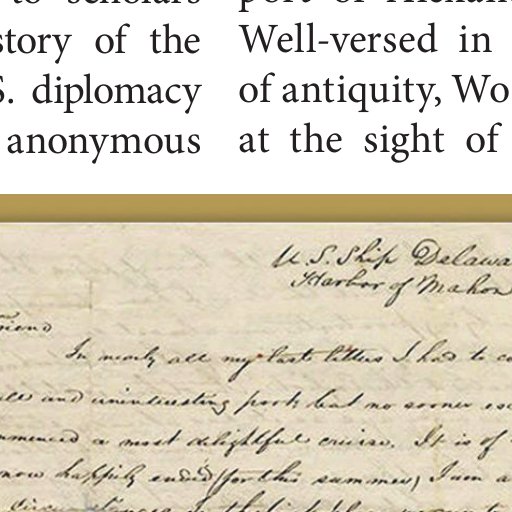 to scholars
story of the
S. diplomacy
anonymous
port of Alexan
Well-versed in
of antiquity, Wo
at the sight of
U.S. Ship Delawa
Harbor of Mahon
riend
In nearly all my last letters I had to co
all and uninteresting but no sooner
mmenced a most delightful cruise. It is of
now happily ended (for this summer) I am a